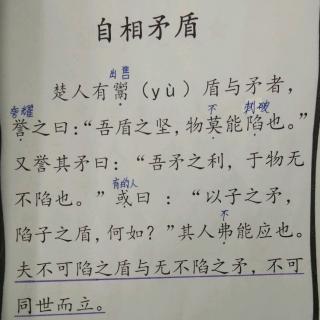 自相矛盾
出售
楚人有鬻（yù）盾与矛者，
夸耀 不 刺破
誉之曰：“吾盾之坚，物莫能陷也。”
又誉其矛曰：“吾矛之利，于物无
有的人
不陷也。”或曰：“以子之矛，
不
陷子之盾，何如？”其人弗能应也。
夫不可陷之盾与无不陷之矛，不可
同世而立。